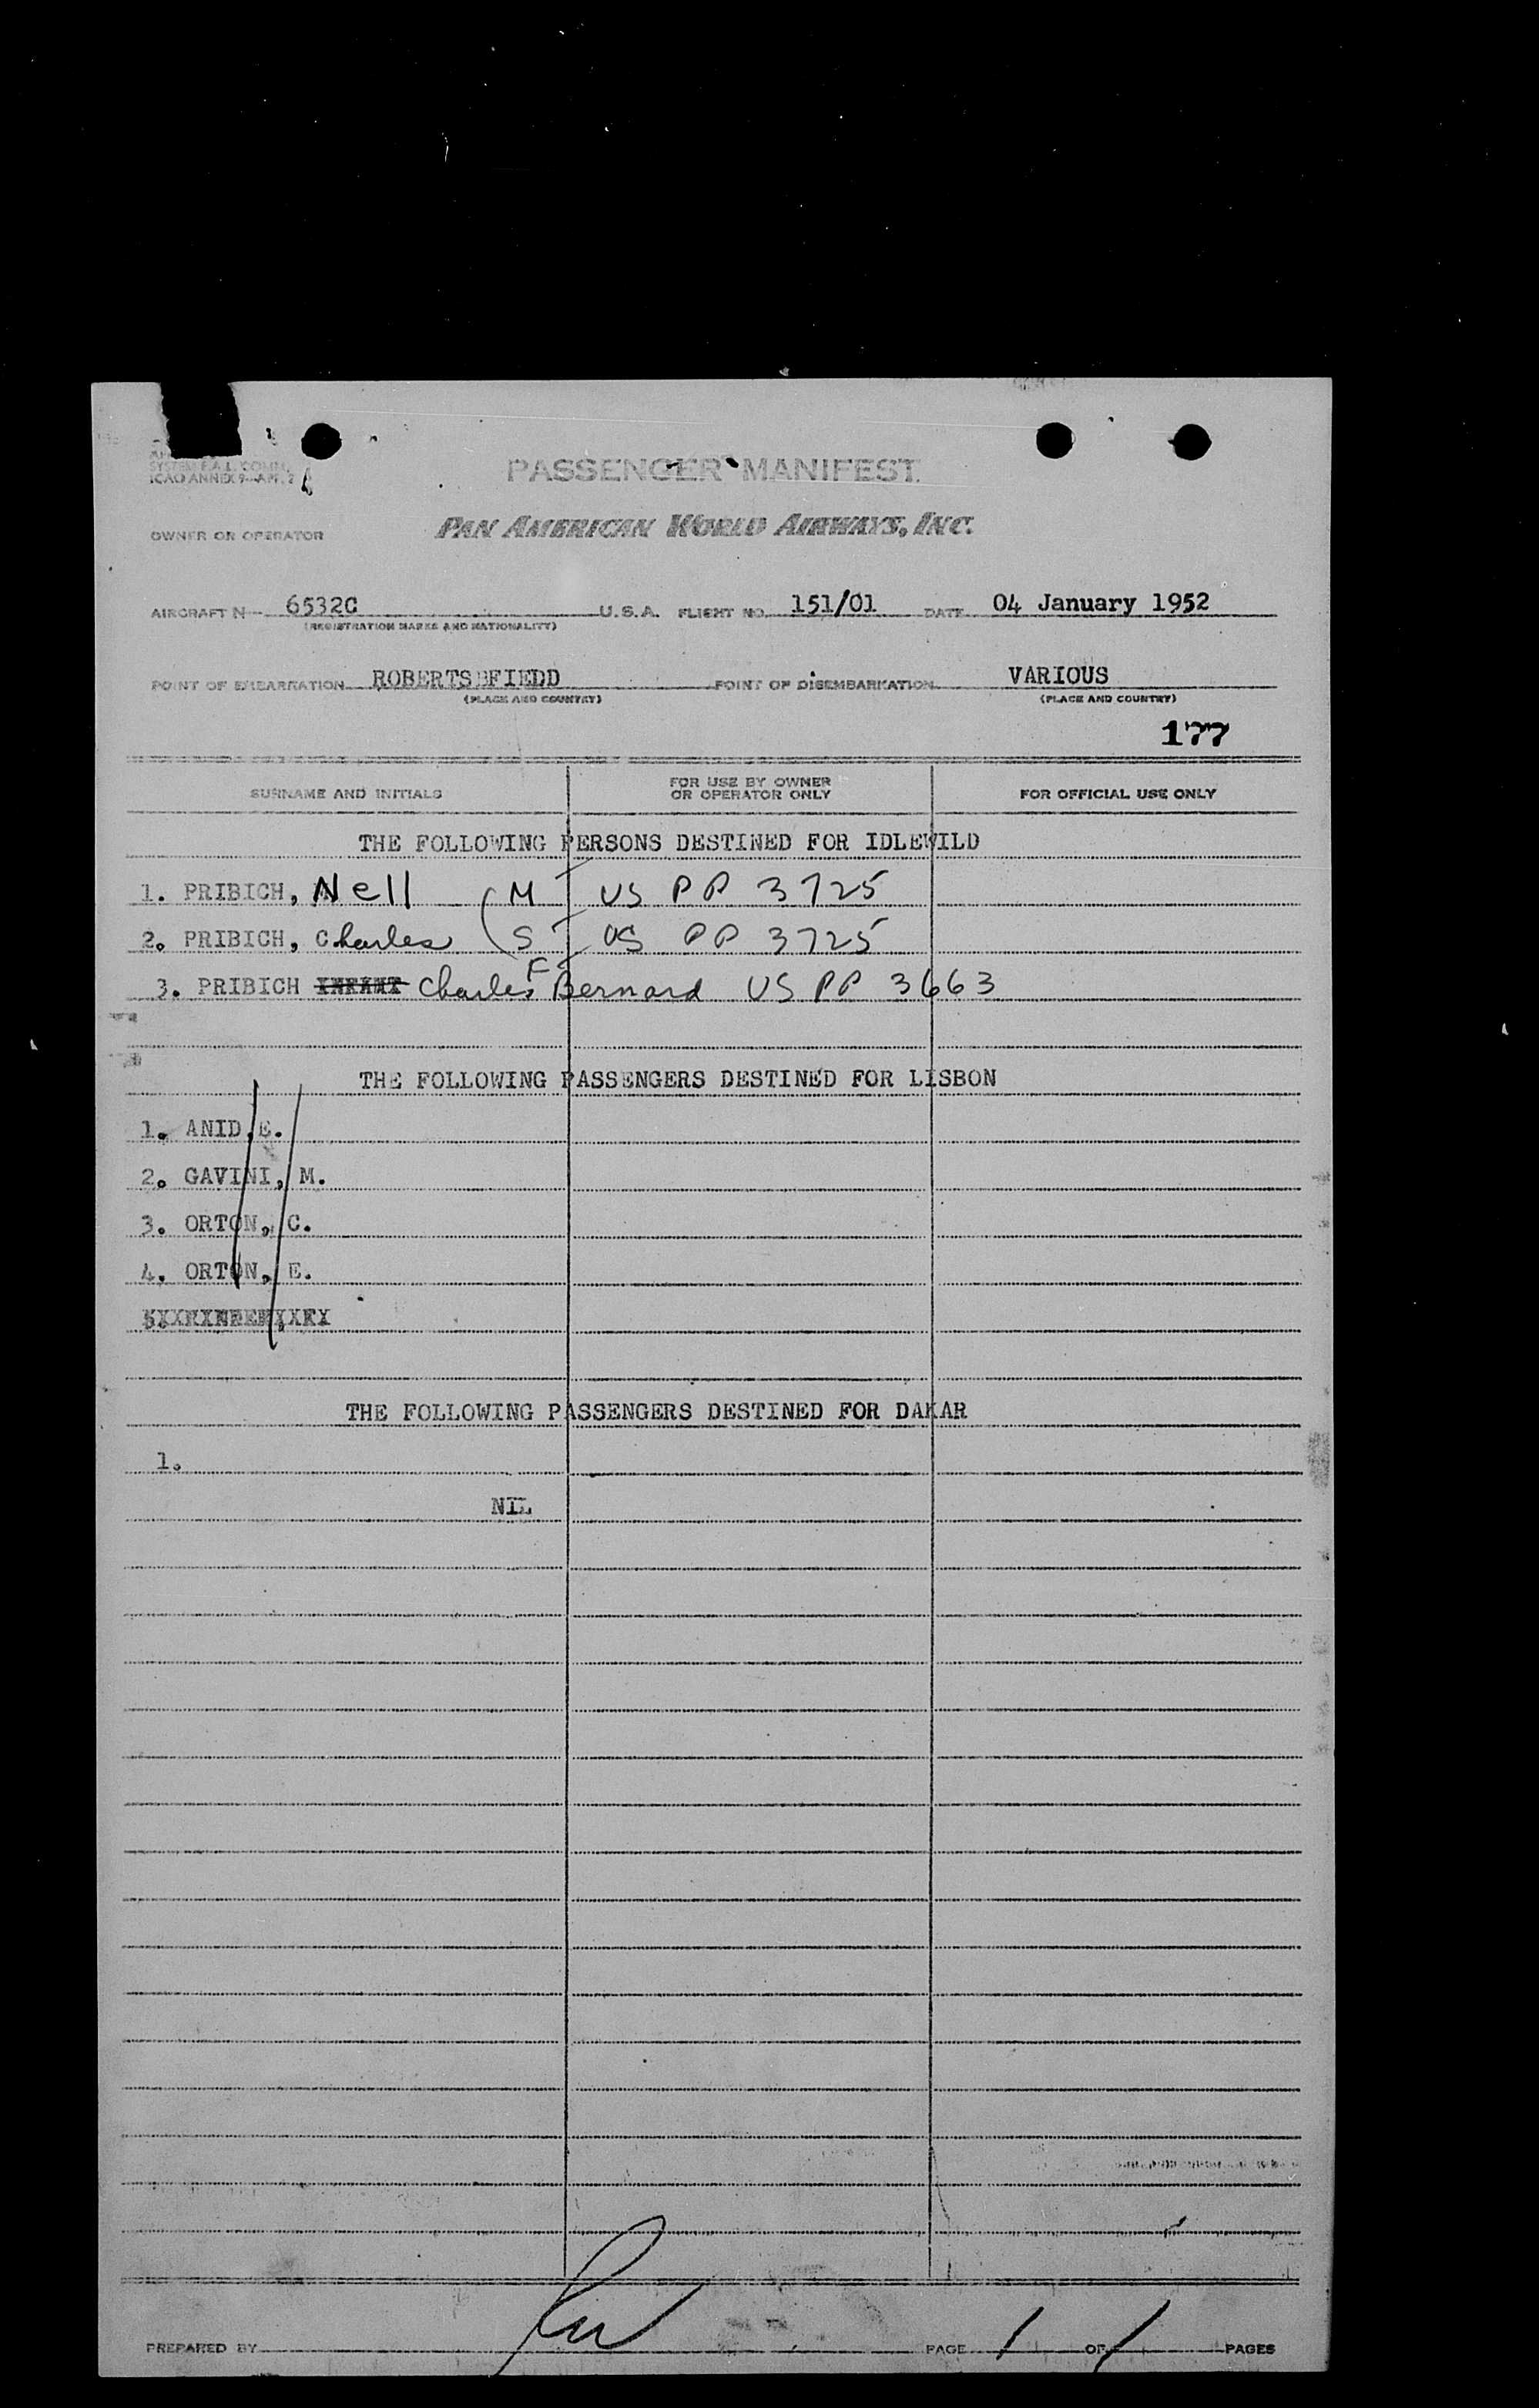 SYSTEM F.A.L. COMM.
ICAO ANNEX 9—APP. 2
PASSENGER MANIFEST
OWNER OR OPERATOR PAN AMERICAN WORLD AIRWAYS, INC.
AIRCRAFT N— 6532C U.S.A. FLIGHT NO. 151/01 DATE 04 January 1952
(REGISTRATION MARKS AND NATIONALITY)
POINT OF EMBARKATION ROBERTS FIEDD POINT OF DISEMBARKATION VARIOUS
(PLACE AND COUNTRY) (PLACE AND COUNTRY)
177
SURNAME AND INITIALS FOR USE BY OWNER OR OPERATOR ONLY FOR OFFICIAL USE ONLY
THE FOLLOWING PERSONS DESTINED FOR IDLEWILD
1. PRIBICH, Nell (M US PP 3725
2. PRIBICH, Charles (S US PP 3725
3. PRIBICH INFANT Charles F Bernard US PP 3663
THE FOLLOWING PASSENGERS DESTINED FOR LISBON
1. ANID.E.
2. GAVINI, M.
3. ORTON, C.
4. ORTON, E.
5.
THE FOLLOWING PASSENGERS DESTINED FOR DAKAR
1.
NIL
PREPARED BY PAGE 1 OF 1 PAGES